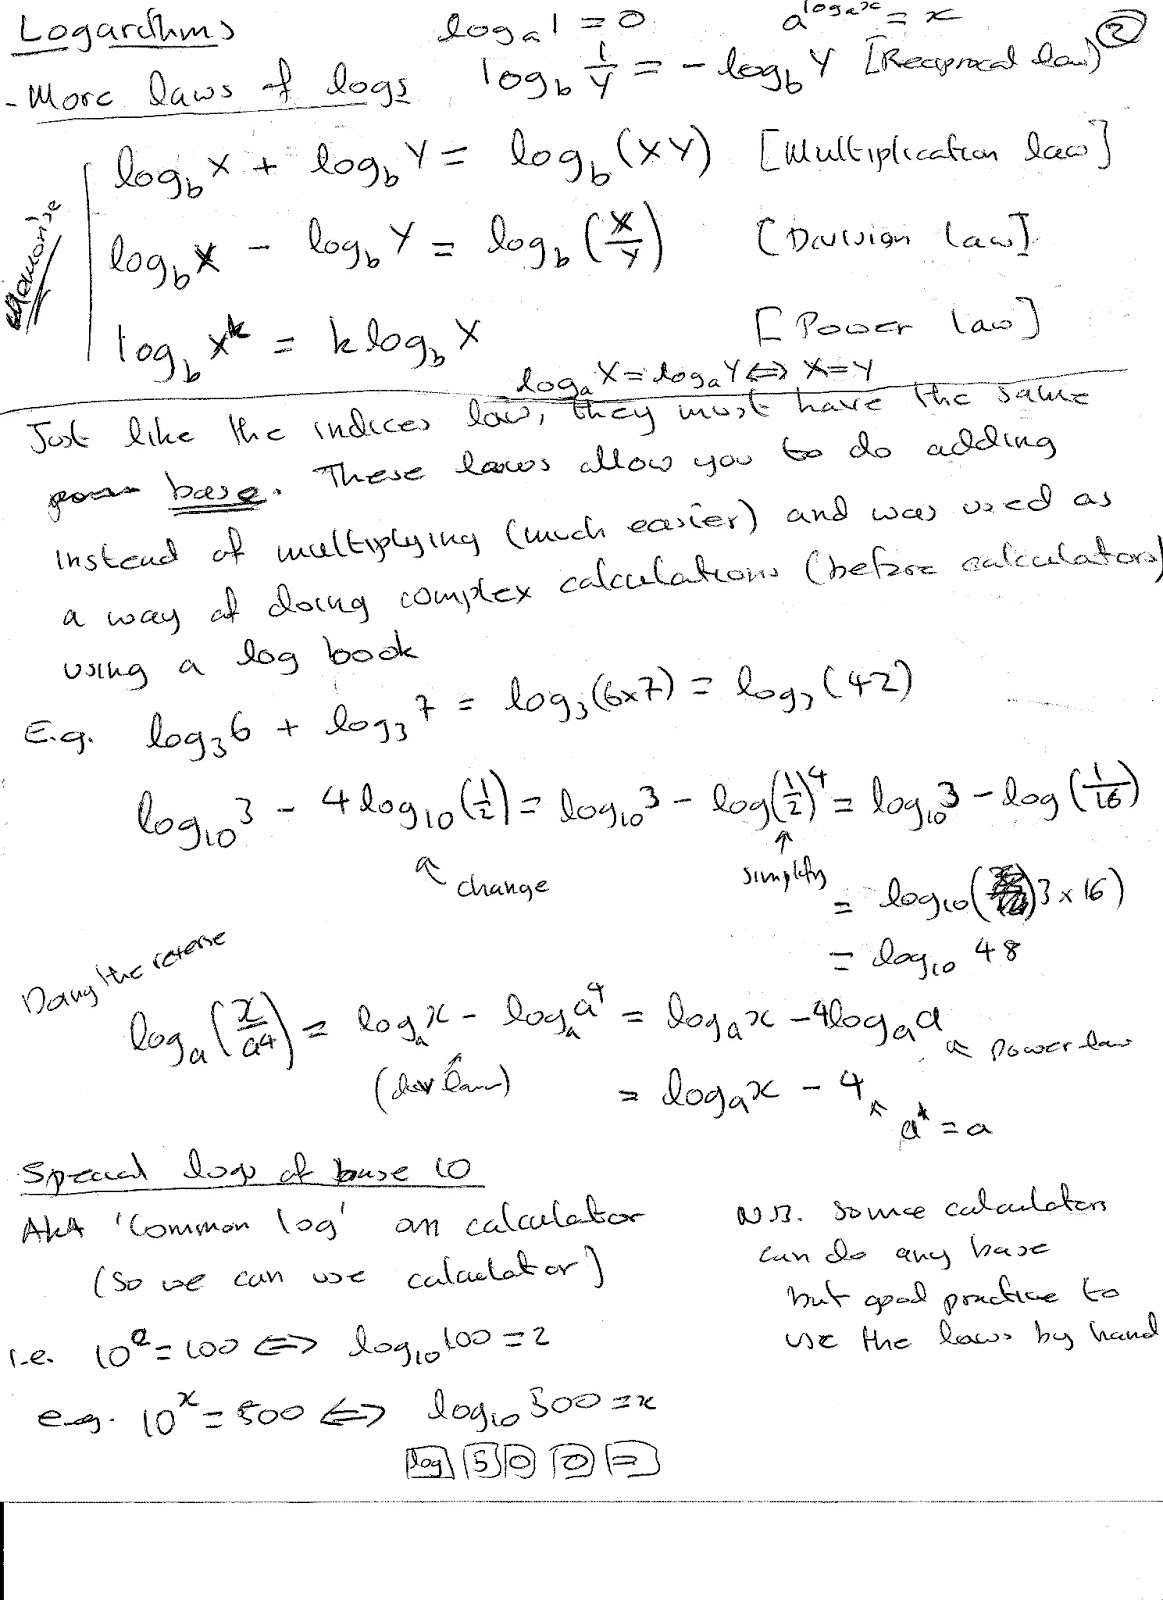 Logarithms log_a 1 = 0 a^(log_a x) = x ②
- More laws of logs log_b 1/Y = - log_b Y [Reciprocal law]
Memorise
log_b X + log_b Y = log_b (XY) [Multiplication law]
log_b X - log_b Y = log_b (X/Y) [Division law]
log_b X^k = k log_b X [Power law]
log_a X = log_a Y ⇔ X = Y
Just like the indices law, they must have the same
base. These laws allow you to do adding
instead of multiplying (much easier) and was used as
a way of doing complex calculations (before calculators)
using a log book
E.g. log_3 6 + log_3 7 = log_3 (6x7) = log_3 (42)
log_10 3 - 4 log_10 (1/2) = log_10 3 - log(1/2)^4 = log_10 3 - log (1/16)
↑ change ↑ simplify
= log_10 (3 x 16)
= log_10 48
Doing the reverse
log_a (x/a^4) = log_a x - log_a a^4 = log_a x - 4 log_a a
(div law) ↖ power law
= log_a x - 4
↖ a^1 = a
Special logs of base 10
AKA 'Common log' on calculator
(so we can use calculator)
N.B. Some calculators
can do any base
but good practice to
use the laws by hand
i.e. 10^2 = 100 ⇔ log_10 100 = 2
e.g. 10^x = 500 ⇔ log_10 500 = x
log 5 0 0 =